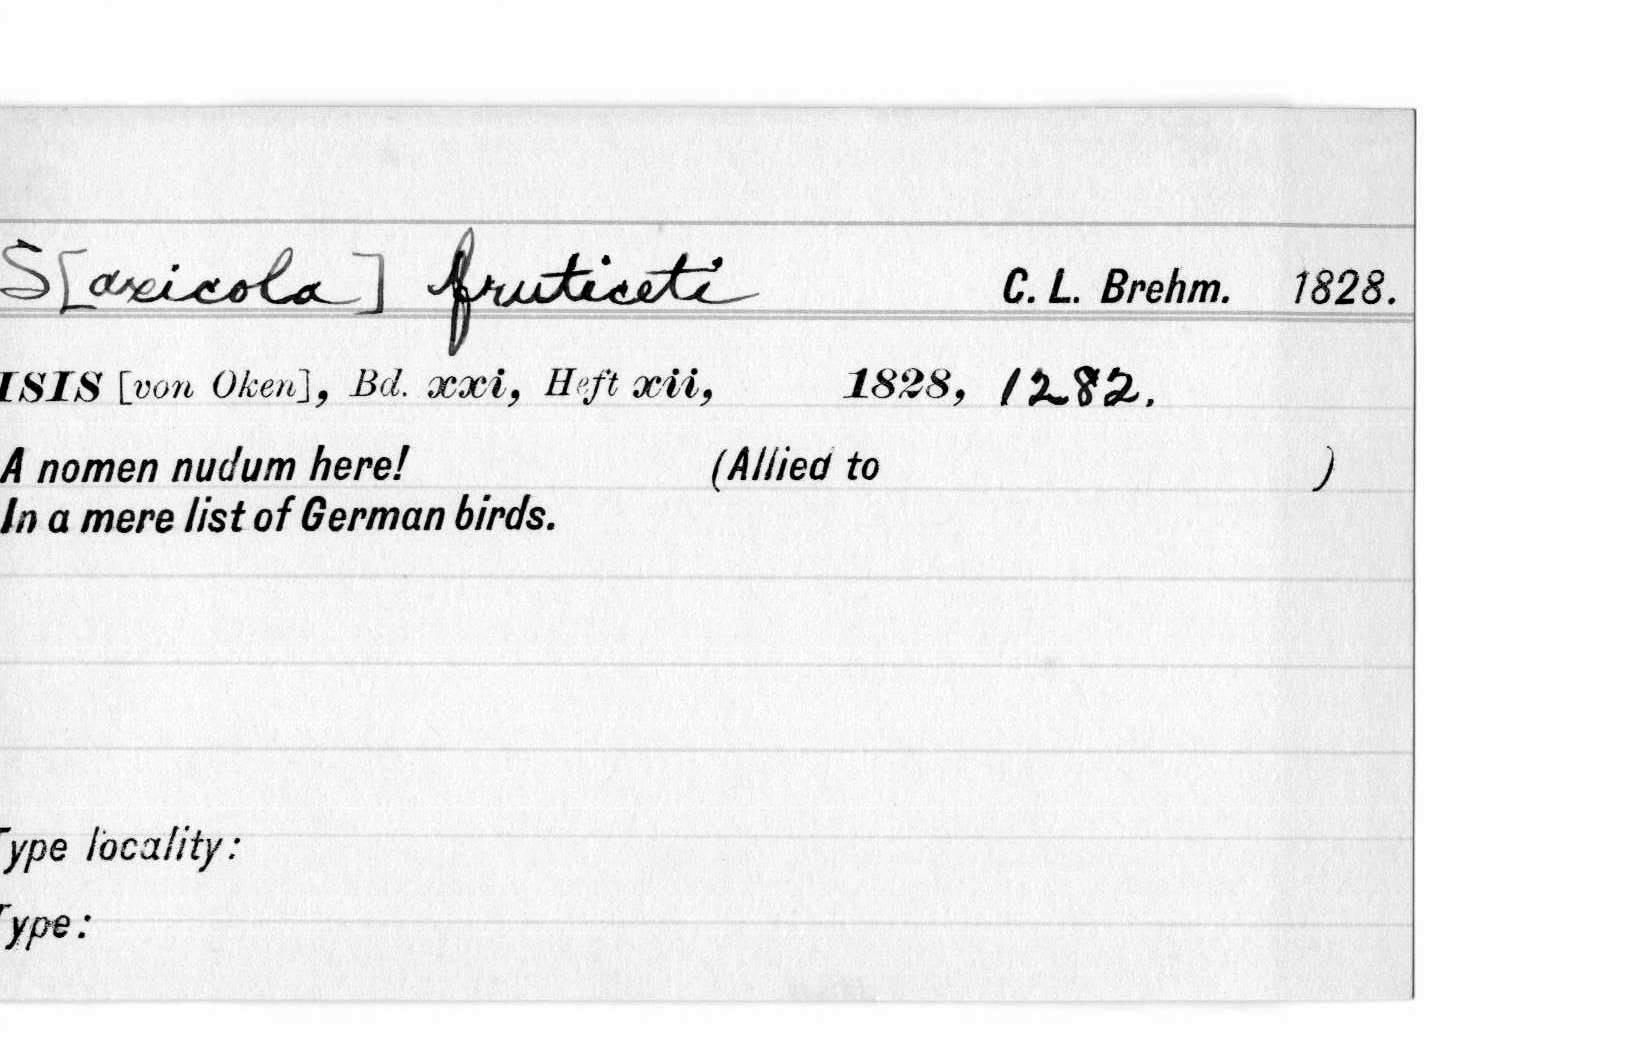 S[axicola] fruticeti C. L. Brehm. 1828.
ISIS [von Oken], Bd. xxi, Heft xii, 1828, 1282.
A nomen nudum here! (Allied to )
In a mere list of German birds.
Type locality:
Type: